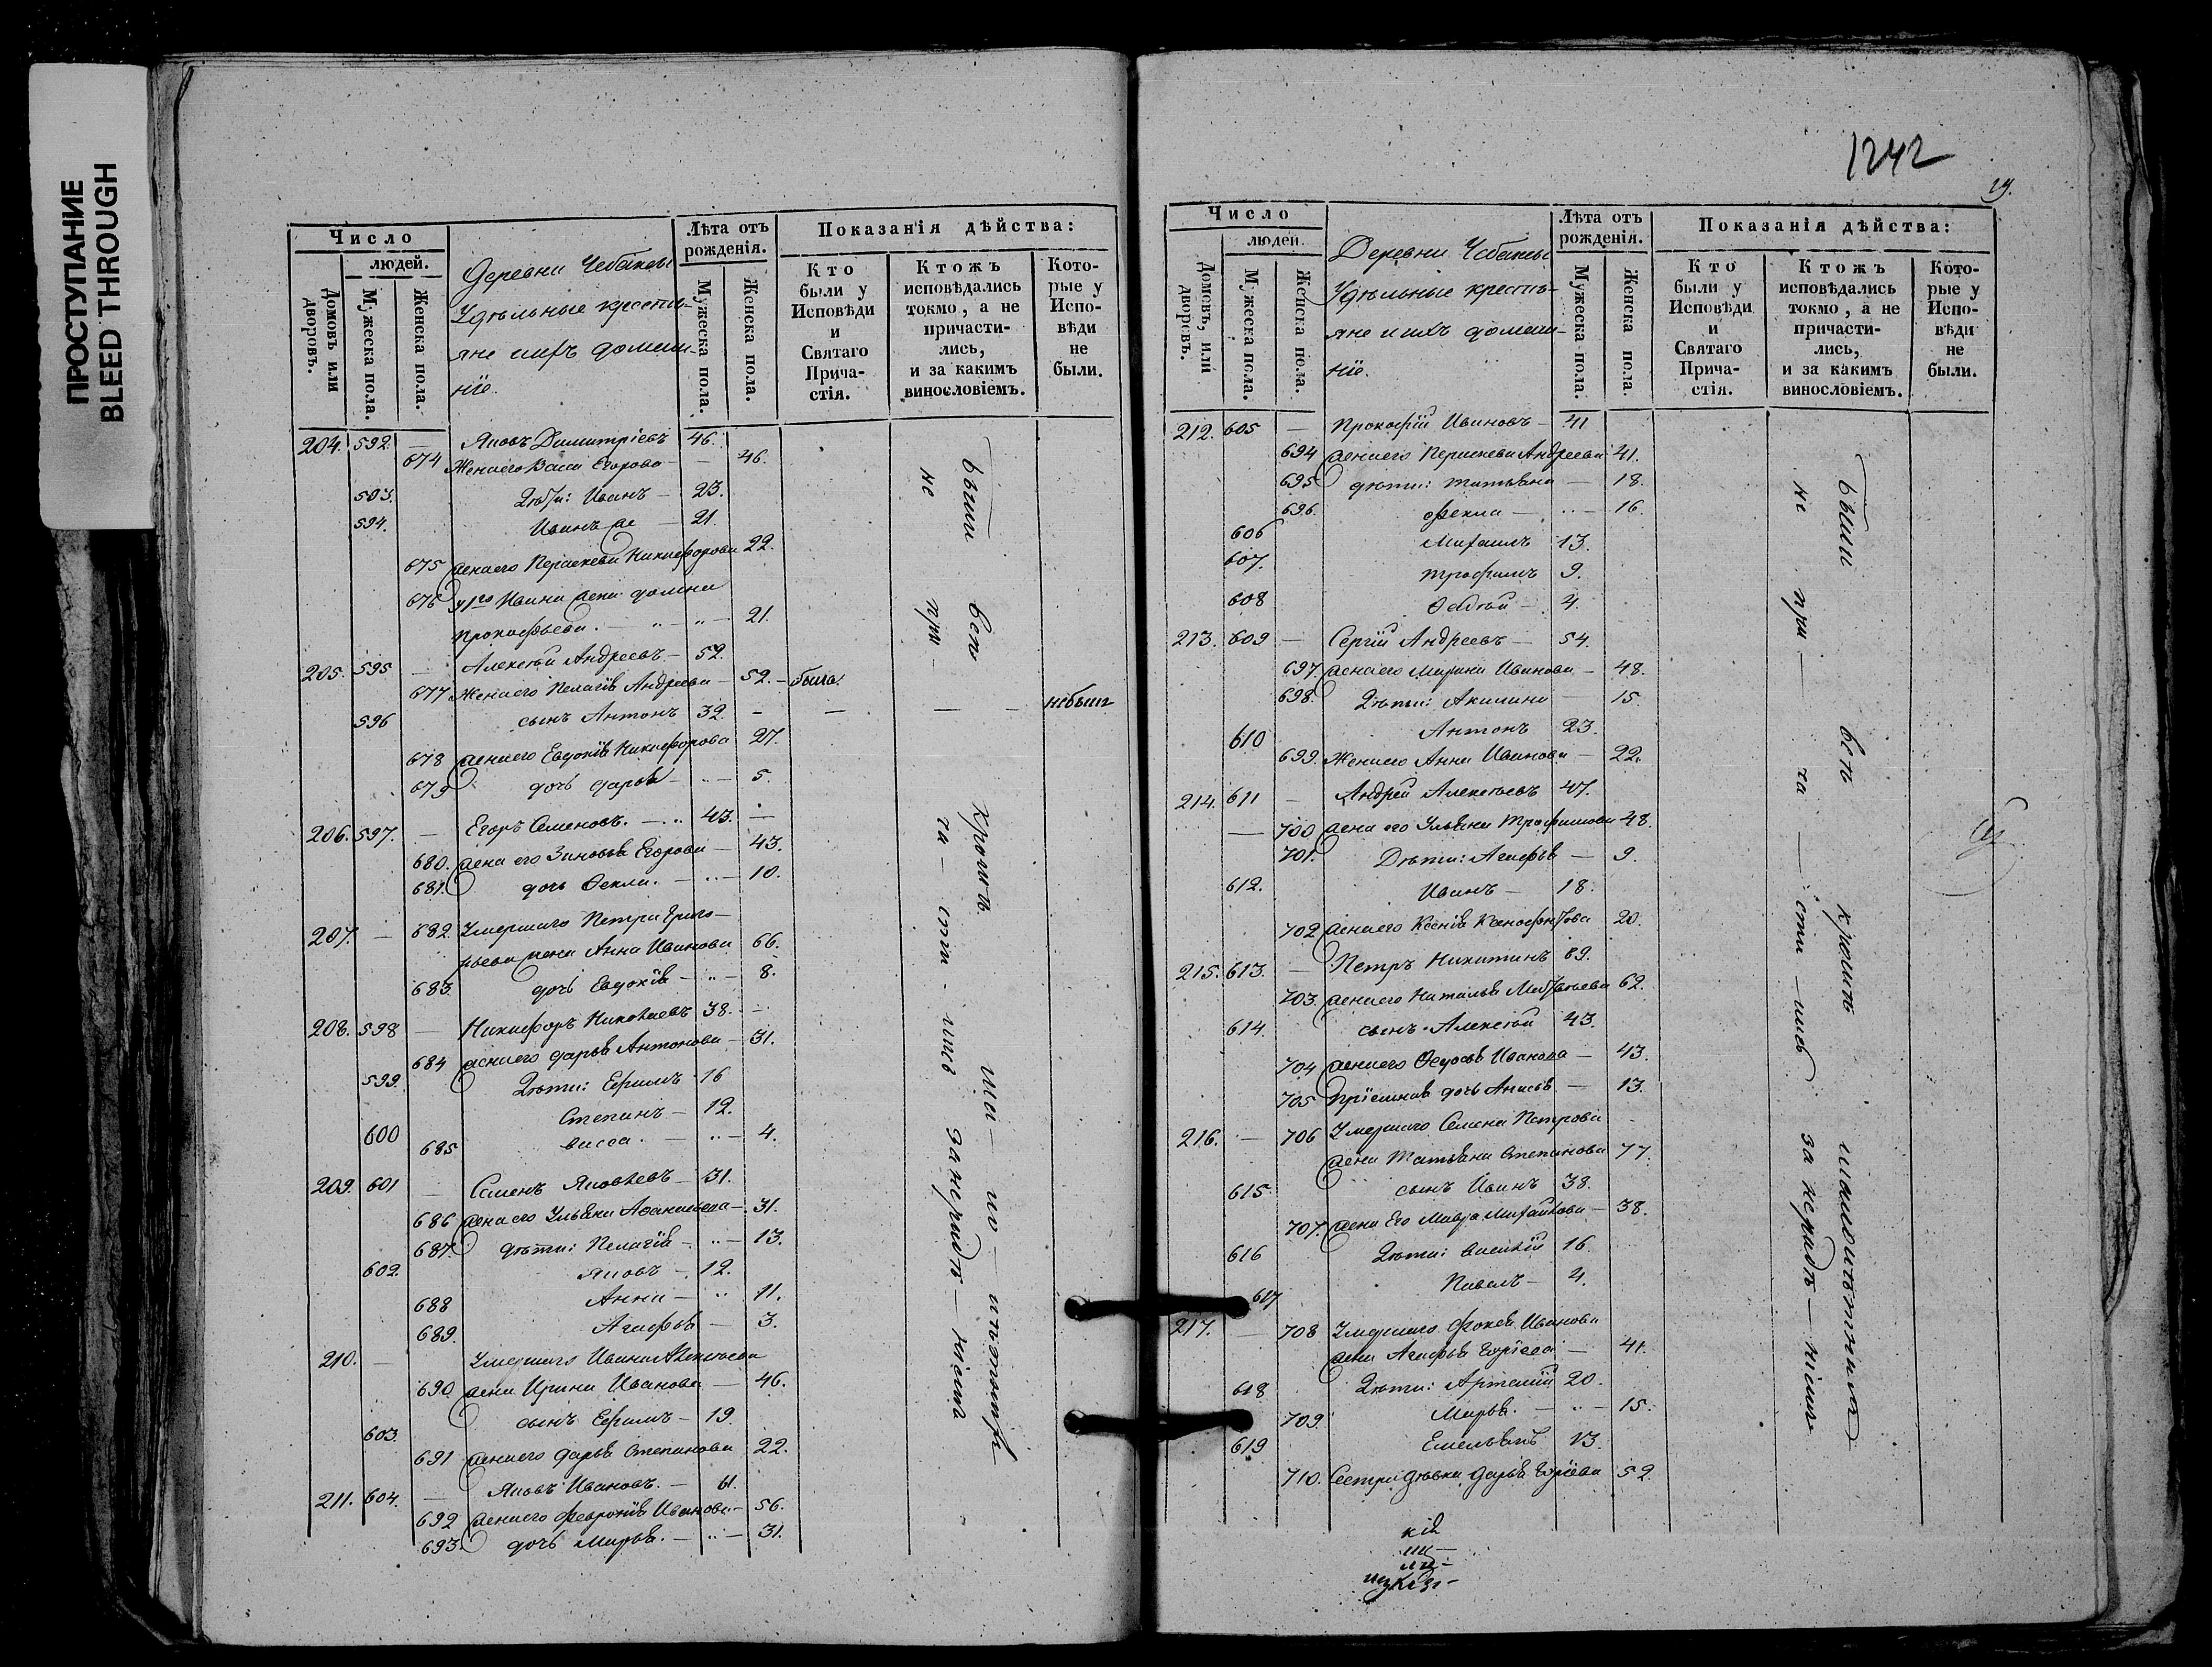 ПРОСТУПАНИЕ
BLEED THROUGH
Число
людей.
Домовъ или дворовъ.
Мужеска пола.
Женска пола.
Деревни Чебаков
Удѣльные крестья-
яне ихъ домаш-
ніе.
Лѣта отъ рожденія.
Мужеска пола.
Женска пола.
Показанія дѣйства:
Кто были у Исповѣди и Святаго Прича-стія.
Ктожъ исповѣдались токмо, а не причасти-лись, и за какимъ винословіемъ.
Кото-рые у Испо-вѣди не были.
204. 592. — Яковъ Димитріевъ 46.
674 Жена его Васса Егорова — 46.
593. Дѣти: Иванъ — 23.
594. Иванъ же — 21.
675 жена его Параскева Никифорова 22.
676 у 1го Ивана жена домна
Прокофьева. — „ — 21.
205. 595 — Алексѣй Андреевъ — 52.
677 Жена его Пелагія Андреева — 52. — была.
596 сынъ Антонъ 32. — — — небылъ
678 жена его Евдокія Никифорова 27.
679 дочь Дарья — „ — 5.
206. 597. — Егоръ Семеновъ. — „ 43. —
680. жена его Зиновья Егорова — 43.
681. дочь Ѳекла. — „ — 10.
207. — 682. Умершаго Петра Григо-
рьева жена Анна Иванова 66.
683. дочь Евдокія — „ — 8.
208. 598 — Никифоръ Николаевъ 38. —
684 жена его Дарья Антонова — 31.
599. Дѣти: Ефимъ 16
600 Степанъ — 12.
685 Васса. — „ — 4.
209. 601 — Семенъ Яковлевъ — 31.
686 жена его Ульяна Аѳанасьева — 31.
687. дѣти: Пелагія — „ — 13.
602. Яковъ — 12.
688 Анна — „ 11.
689. Агафья — 3.
210. — Умершаго Ивана Алексѣева
690. жена Ирина Иванова — 46.
603. сынъ Ефимъ — 19.
691 жена его Дарья Степанова 22.
211. 604. — Яковъ Ивановъ. — 61.
692 жена его Февронія Иванова — 56.
693. дочь Марья. — „ — 31.
были всѣ кромѣ
не при — ча — сти — лись за нерадѣ — ніемъ
1242
19.
Число
людей.
Домовъ, или дворовъ.
Мужеска пола.
Женска пола.
Деревни Чебаков
Удѣльные кресть-
яне ихъ домаш-
ніе.
Лѣта отъ рожденія.
Мужеска пола.
Женска пола
Показанія дѣйства:
Кто были у Исповѣди и Святаго Прича-стія.
Ктожъ исповѣдались токмо, а не причасти-лись, и за какимъ винословіемъ.
Кото-рые у Испо-вѣди не были.
212. 605 — Прокофій Ивановъ — 41
694 жена его Параскева Андреева 41.
695 дѣти: татьяна — 18.
696. Фекла — „ — 16.
606 Михаилъ 13.
607. трофимъ 9.
608 4.
213. 609 — Сергій Андреевъ — 54.
697. жена его Марина Иванова — 48.
698. Дѣти: Акилина — 15.
610 Антонъ 23.
699. Жена его Анна Иванова — 22.
214. 611 — Андрей Алексѣевъ 47.
— 700 жена его Ульяна Трофимова 48.
701. Дѣти: Агафья — 9.
612. Иванъ — 18.
702 жена его Ксенія Ксенофонтова 20.
215. 613. — Петръ Никитинъ 89.
703. жена его Наталья Матвѣева 62.
614. сынъ Алексѣй 43.
704 жена его Ѳедосья Иванова — 43.
705 Пріемная дочь Анисья — 13.
216. — 706 Умершаго Семена Петрова
жена Татьяна Степанова 77.
615. сынъ Иванъ 38.
707. жена Его Мавра Михайлова — 38.
616 Дѣти: Василій 16.
617 Павелъ — 4.
217. — 708 Умершаго Фокея Иванова
жена Агафья — 41.
618 Дѣти: Артемій 20.
709. Марья. — „ — 15.
619 Емельянъ 13.
710. Сестра дѣвка Дарья 52.
были всѣ кромѣ малолѣтныхъ
не при — ча — сти — лись за нерадѣ — ніемъ